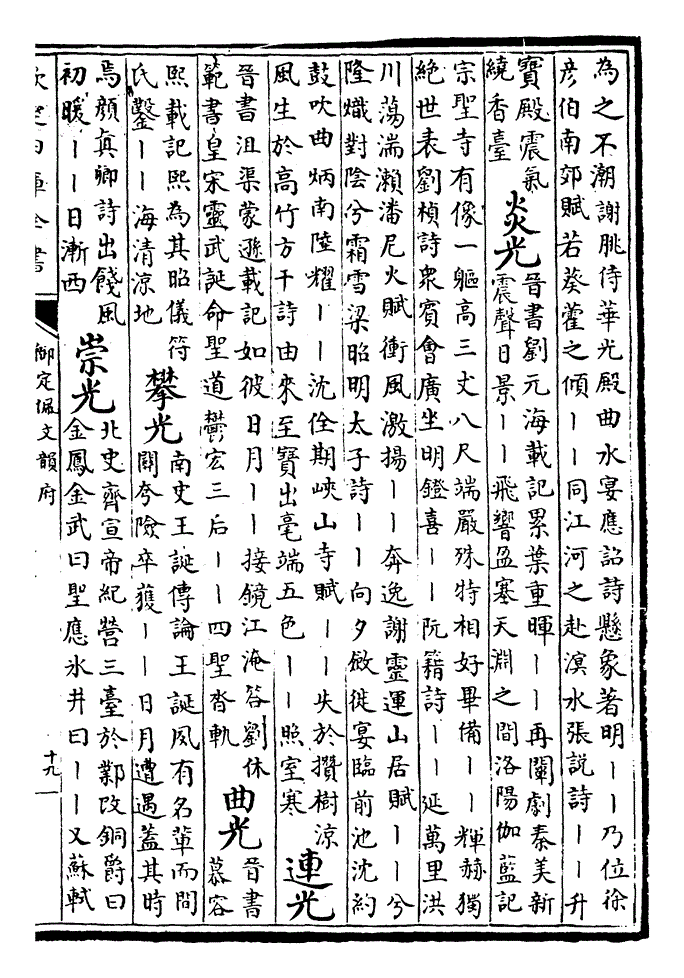 為之不潮謝朓侍華光殿曲水宴應詔詩懸象著明丨丨乃位徐
彦伯南郊賦若葵藿之傾丨丨同江河之赴溟水張説詩丨丨升
寶殿震氣
繞香臺
炎光
晉書劉元海載記累葉重暉丨丨再闡劇秦美新
震聲日景丨丨飛響盈塞天淵之間洛陽伽藍記
宗聖寺有像一軀高三丈八尺端嚴殊特相好畢備丨丨輝赫獨
絶世表劉楨詩衆賓會廣坐明鐙熹丨丨阮籍詩丨丨延萬里洪
川蕩湍瀨潘尼火賦衝風激揚丨丨奔逸謝靈運山居賦丨丨兮
隆熾對陰兮霜雪梁昭明太子詩丨丨向夕斂徙宴臨前池沈約
鼓吹曲炳南陸耀丨丨沈佺期峽山寺賦丨丨失於攢樹涼
風生於高竹方干詩由來至寶出毫端五色丨丨照室寒
連光
晉書沮渠蒙遜載記如彼日月丨丨接鏡江淹答劉休
範書皇宋靈武誕命聖道鬱宏三后丨丨四聖沓軌
曲光
晉書
慕容
熙載記熙為其昭儀符
氏鑿丨丨海清涼地
攀光
南史王誕傳論王誕夙有名輩而間
關夸險卒獲丨丨日月遭遇蓋其時
焉顔真卿詩出餞風
初暖丨丨日漸西
崇光
北史齊宣帝紀營三臺於鄴改銅爵曰
金鳳金武曰聖應氷井曰丨丨又蘇軾
欽定四庫全書
御定佩文韻府
十九